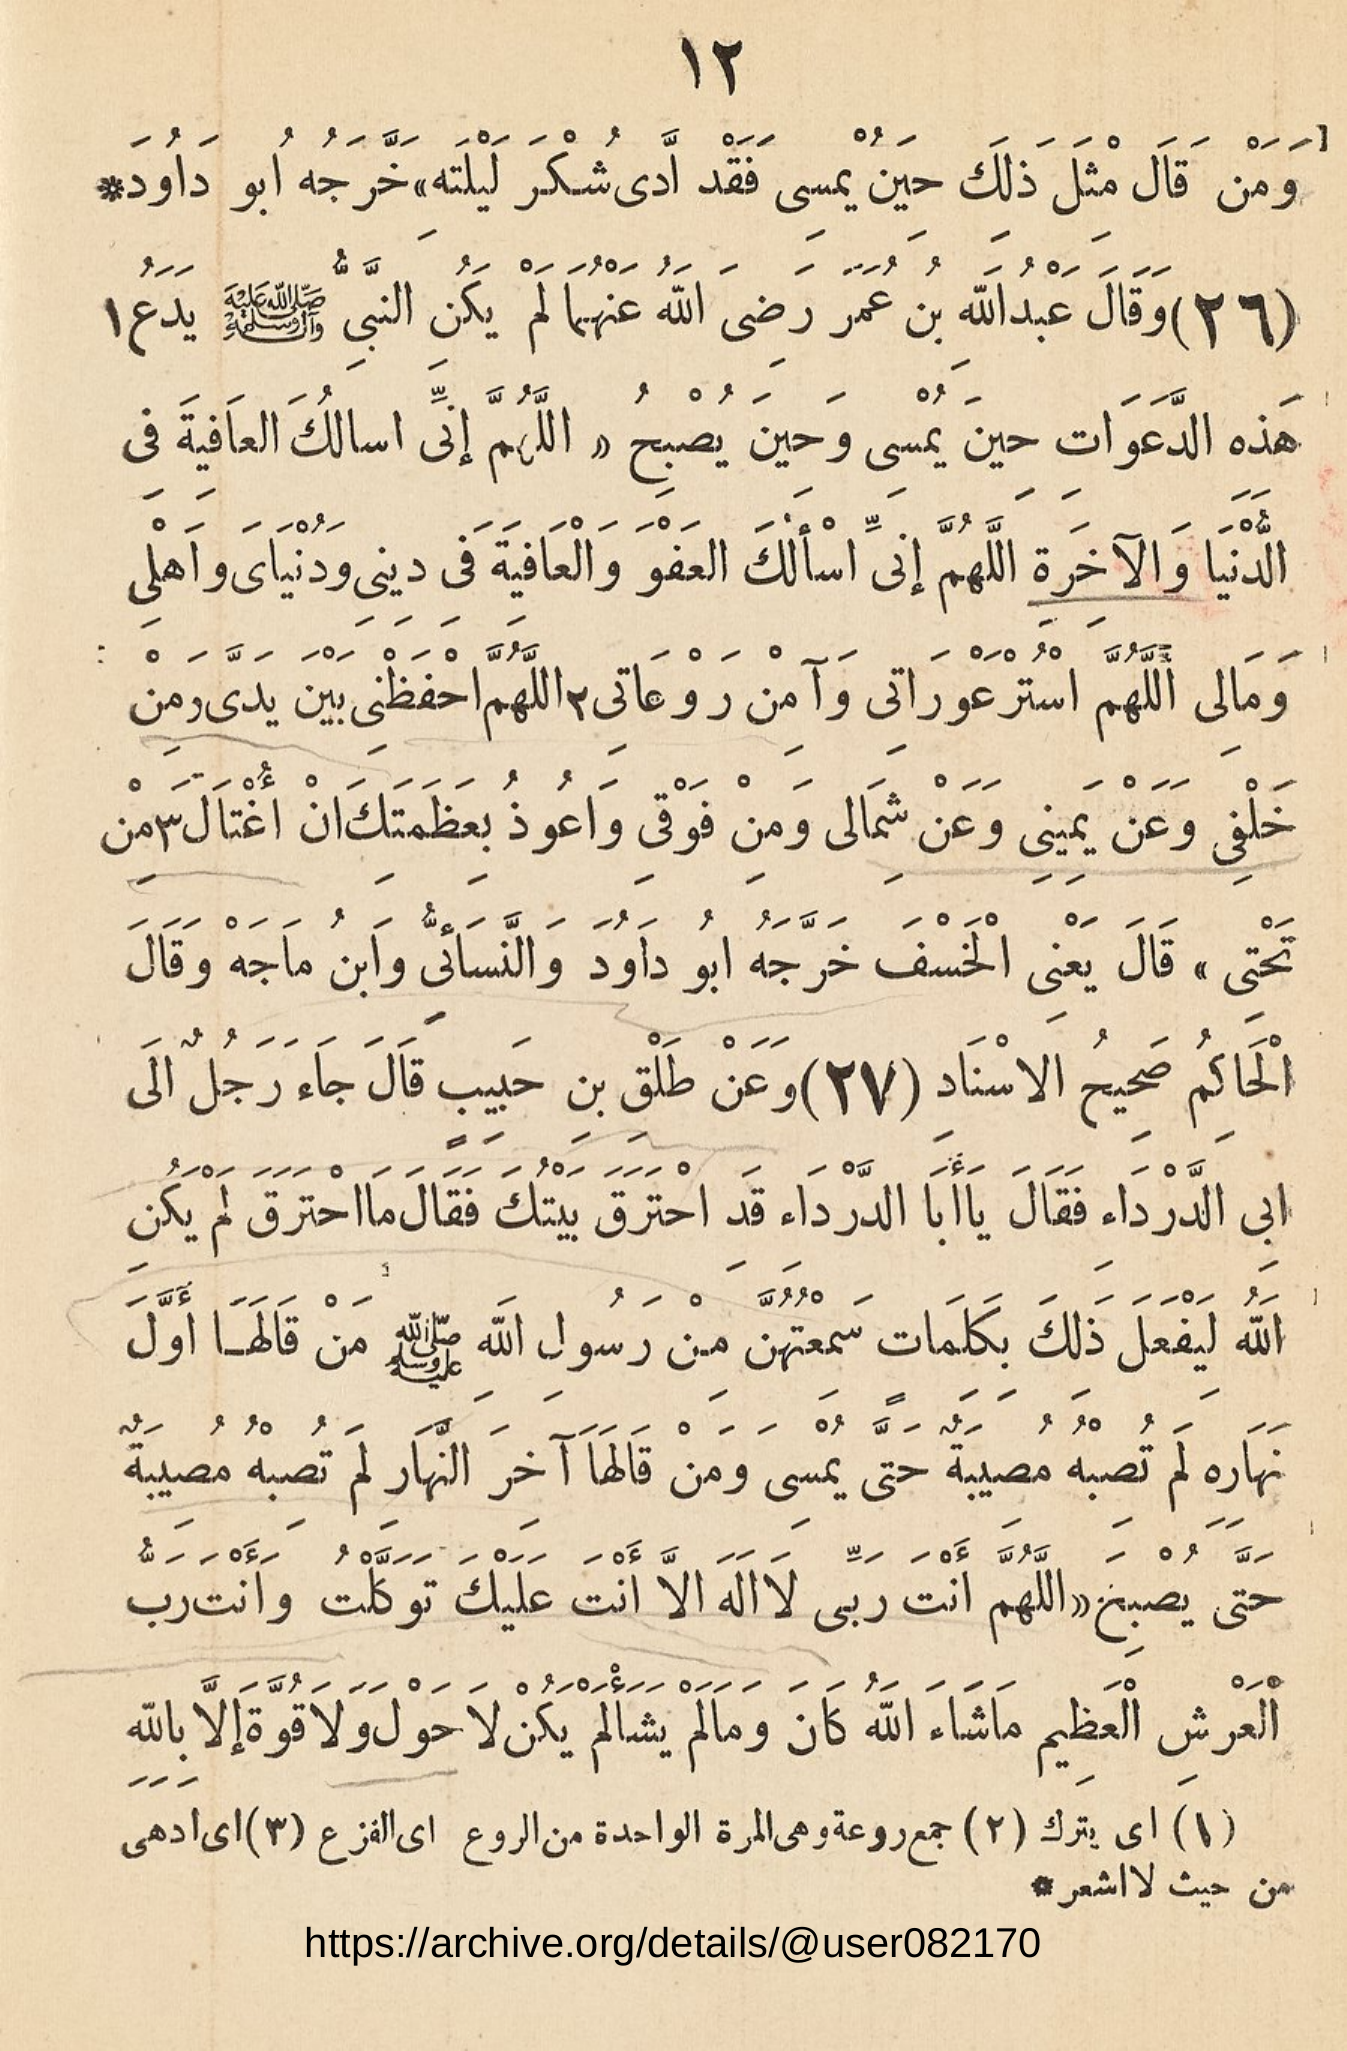 ١٢
وَمَنْ قَالَ مِثْلَ ذَلِكَ حِينَ يُمْسِى فَقَدْ أَدَّى شُكْرَ لَيْلَتِه» خَرَّجَهُ ابُو دَاوُدَ *
(٢٦) وَقَالَ عَبْدُ اللّهِ بنُ عُمَرَ رَضِىَ اللّهُ عَنْهُمَا لَمْ يَكُنِ النَّبِىُّ صَلَّى اللهُ عَلَيْهِ وَآلِهِ وَسَلَّمَ يَدَعُ ١
هَذِهِ الدَّعَوَاتِ حِينَ يُمْسِى وَحِينَ يُصْبِحُ « اللَّهُمَّ إِنِّى اسالُكَ العَافِيَةَ فِى
الدُّنْيَا وَالآخِرَةِ اللَّهُمَّ إِنِّى اسْأَلُكَ العَفْوَ وَالْعَافِيَةَ فِى دِينِى وَدُنْيَاىَ وَاَهْلِى
وَمَالِى اللَّهُمَّ اسْتُرْ عَوْرَاتِى وَآمِنْ رَوْعَاتِى ٢ اللَّهُمَّ احْفَظْنِى بَيْنَ يَدَىَّ وَمِنْ
خَلْفِى وَعَنْ يَمِينِى وَعَنْ شِمَالِى وَمِنْ فَوْقِى وَاَعُوذُ بِعَظَمَتِكَ انْ اُغْتَالَ ٣ مِنْ
تَحْتِى » قَالَ يَعْنِى الْخَسْفَ خَرَّجَهُ ابُو دَاوُدَ وَالنَّسَائِىُّ وَابنُ مَاجَهْ وَقَالَ
الْحَاكِمُ صَحِيحُ الاسْنَادِ (٢٧) وَعَنْ طَلْقِ بنِ حَبِيبٍ قَالَ جَاءَ رَجُلٌ الَى
ابِى الدَّرْدَاءِ فَقَالَ يَاأَبَا الدَّرْدَاءِ قَدِ احْتَرَقَ بَيْتُكَ فَقَالَ مَا احْتَرَقَ لَمْ يَكُنِ
اللّهُ لِيَفْعَلَ ذَلِكَ بِكَلِمَاتٍ سَمِعْتُهُنَّ مِنْ رَسُولِ اللّهِ صَلَّى اللهُ عَلَيْهِ وَسَلَّمَ مَنْ قَالَهَا أَوَّلَ
نَهَارِهِ لَمْ تُصِبْهُ مُصِيبَةٌ حَتَّى يُمْسِىَ وَمَنْ قَالَهَا آخِرَ النَّهَارِ لَمْ تُصِبْهُ مُصِيبَةٌ
حَتَّى يُصْبِحَ « اللَّهُمَّ أَنْتَ رَبِّى لَا الَهَ الاَّ أَنْتَ عَلَيْكَ تَوَكَّلْتُ وَأَنْتَ رَبُّ
الْعَرْشِ الْعَظِيمِ مَاشَاءَ اللّهُ كَانَ وَمَالَمْ يَشَأْ لَمْ يَكُنْ لَا حَوْلَ وَلَا قُوَّةَ إِلاَّ بِاللّهِ
(١) اى يترك (٢) جمع روعة وهى المرة الواحدة من الروع اى الفزع (٣) اى ادهى
من حيث لا اشعر *
https://archive.org/details/@user082170